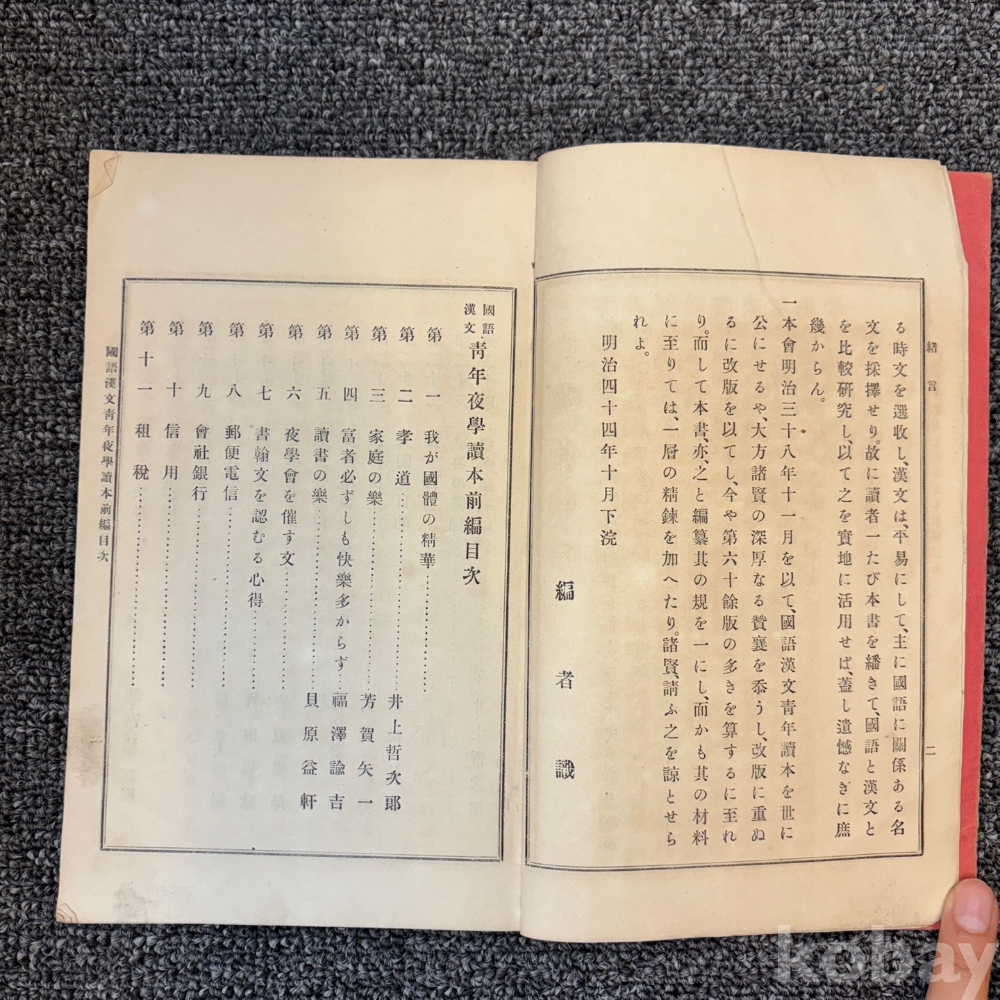 緒言
二
る時文を選收し、漢文は、平易にして、主に國語に關係ある名
文を採擇せり。故に讀者一たび本書を繙きて、國語と漢文と
を比較研究し、以て之を實地に活用せば、蓋し遺憾なきに庶
幾からん。
一本會明治三十八年十一月を以て、國語漢文靑年讀本を世に
公にせるや、大方諸賢の深厚なる贊襄を忝うし、改版に重ぬ
るに改版を以てし、今や第六十餘版の多きを算するに至れ
り。而して本書、亦、之と編纂其の規を一にし、而かも其の材料
に至りては、一層の精鍊を加へたり。諸賢、請ふ之を諒とせら
れよ。
明治四十四年十月下浣
編者識
國語漢文 靑年夜學讀本前編目次
第一 我が國體の精華
第二 孝道 井上哲次郞
第三 家庭の樂 芳賀矢一
第四 富者必ずしも快樂多からず 福澤諭吉
第五 讀書の樂 貝原益軒
第六 夜學會を催す文
第七 書翰文を認むる心得
第八 郵便電信
第九 會社銀行
第十 信用
第十一 租稅
國語漢文靑年夜學讀本前編目次
一
kobay